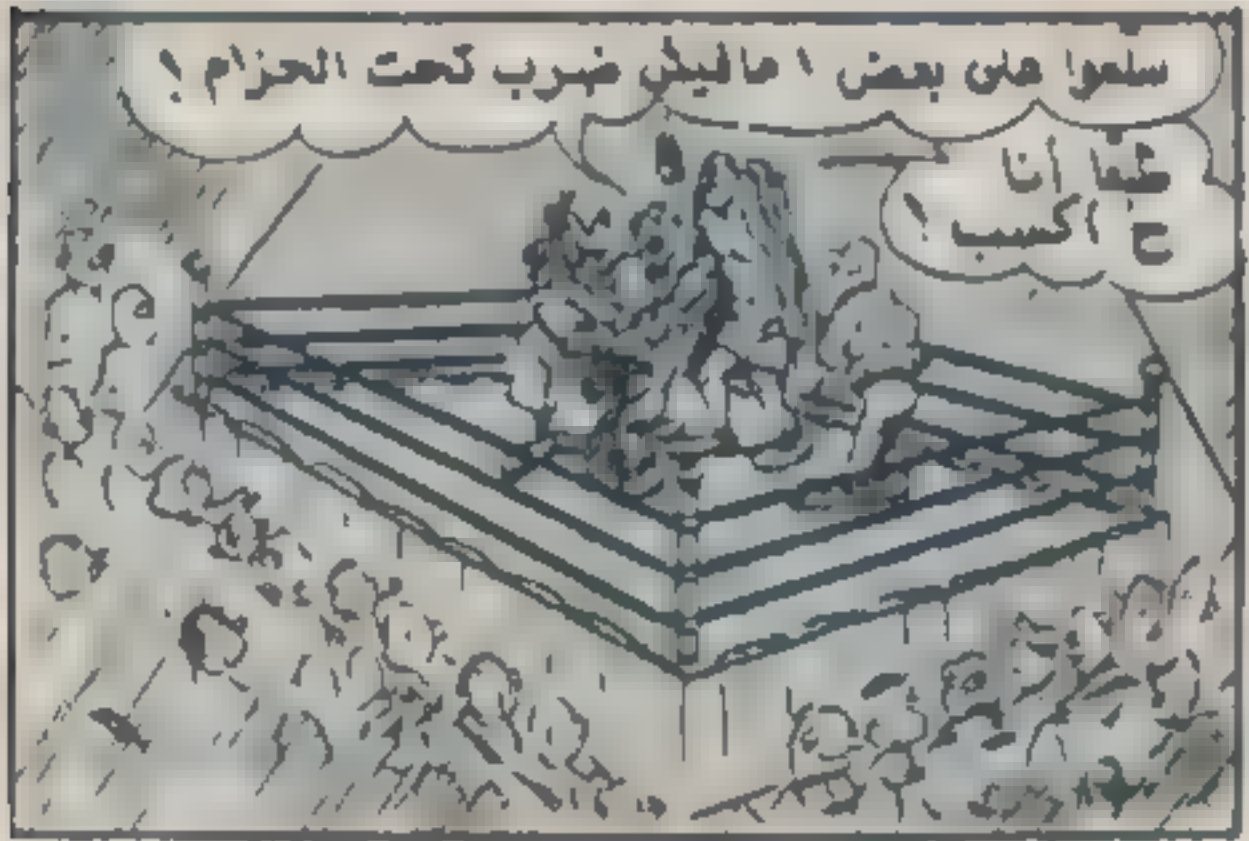 سلموا على بعض ! ماليش ضرب تحت الحزام !
طبعا أنا
ح اكسب !